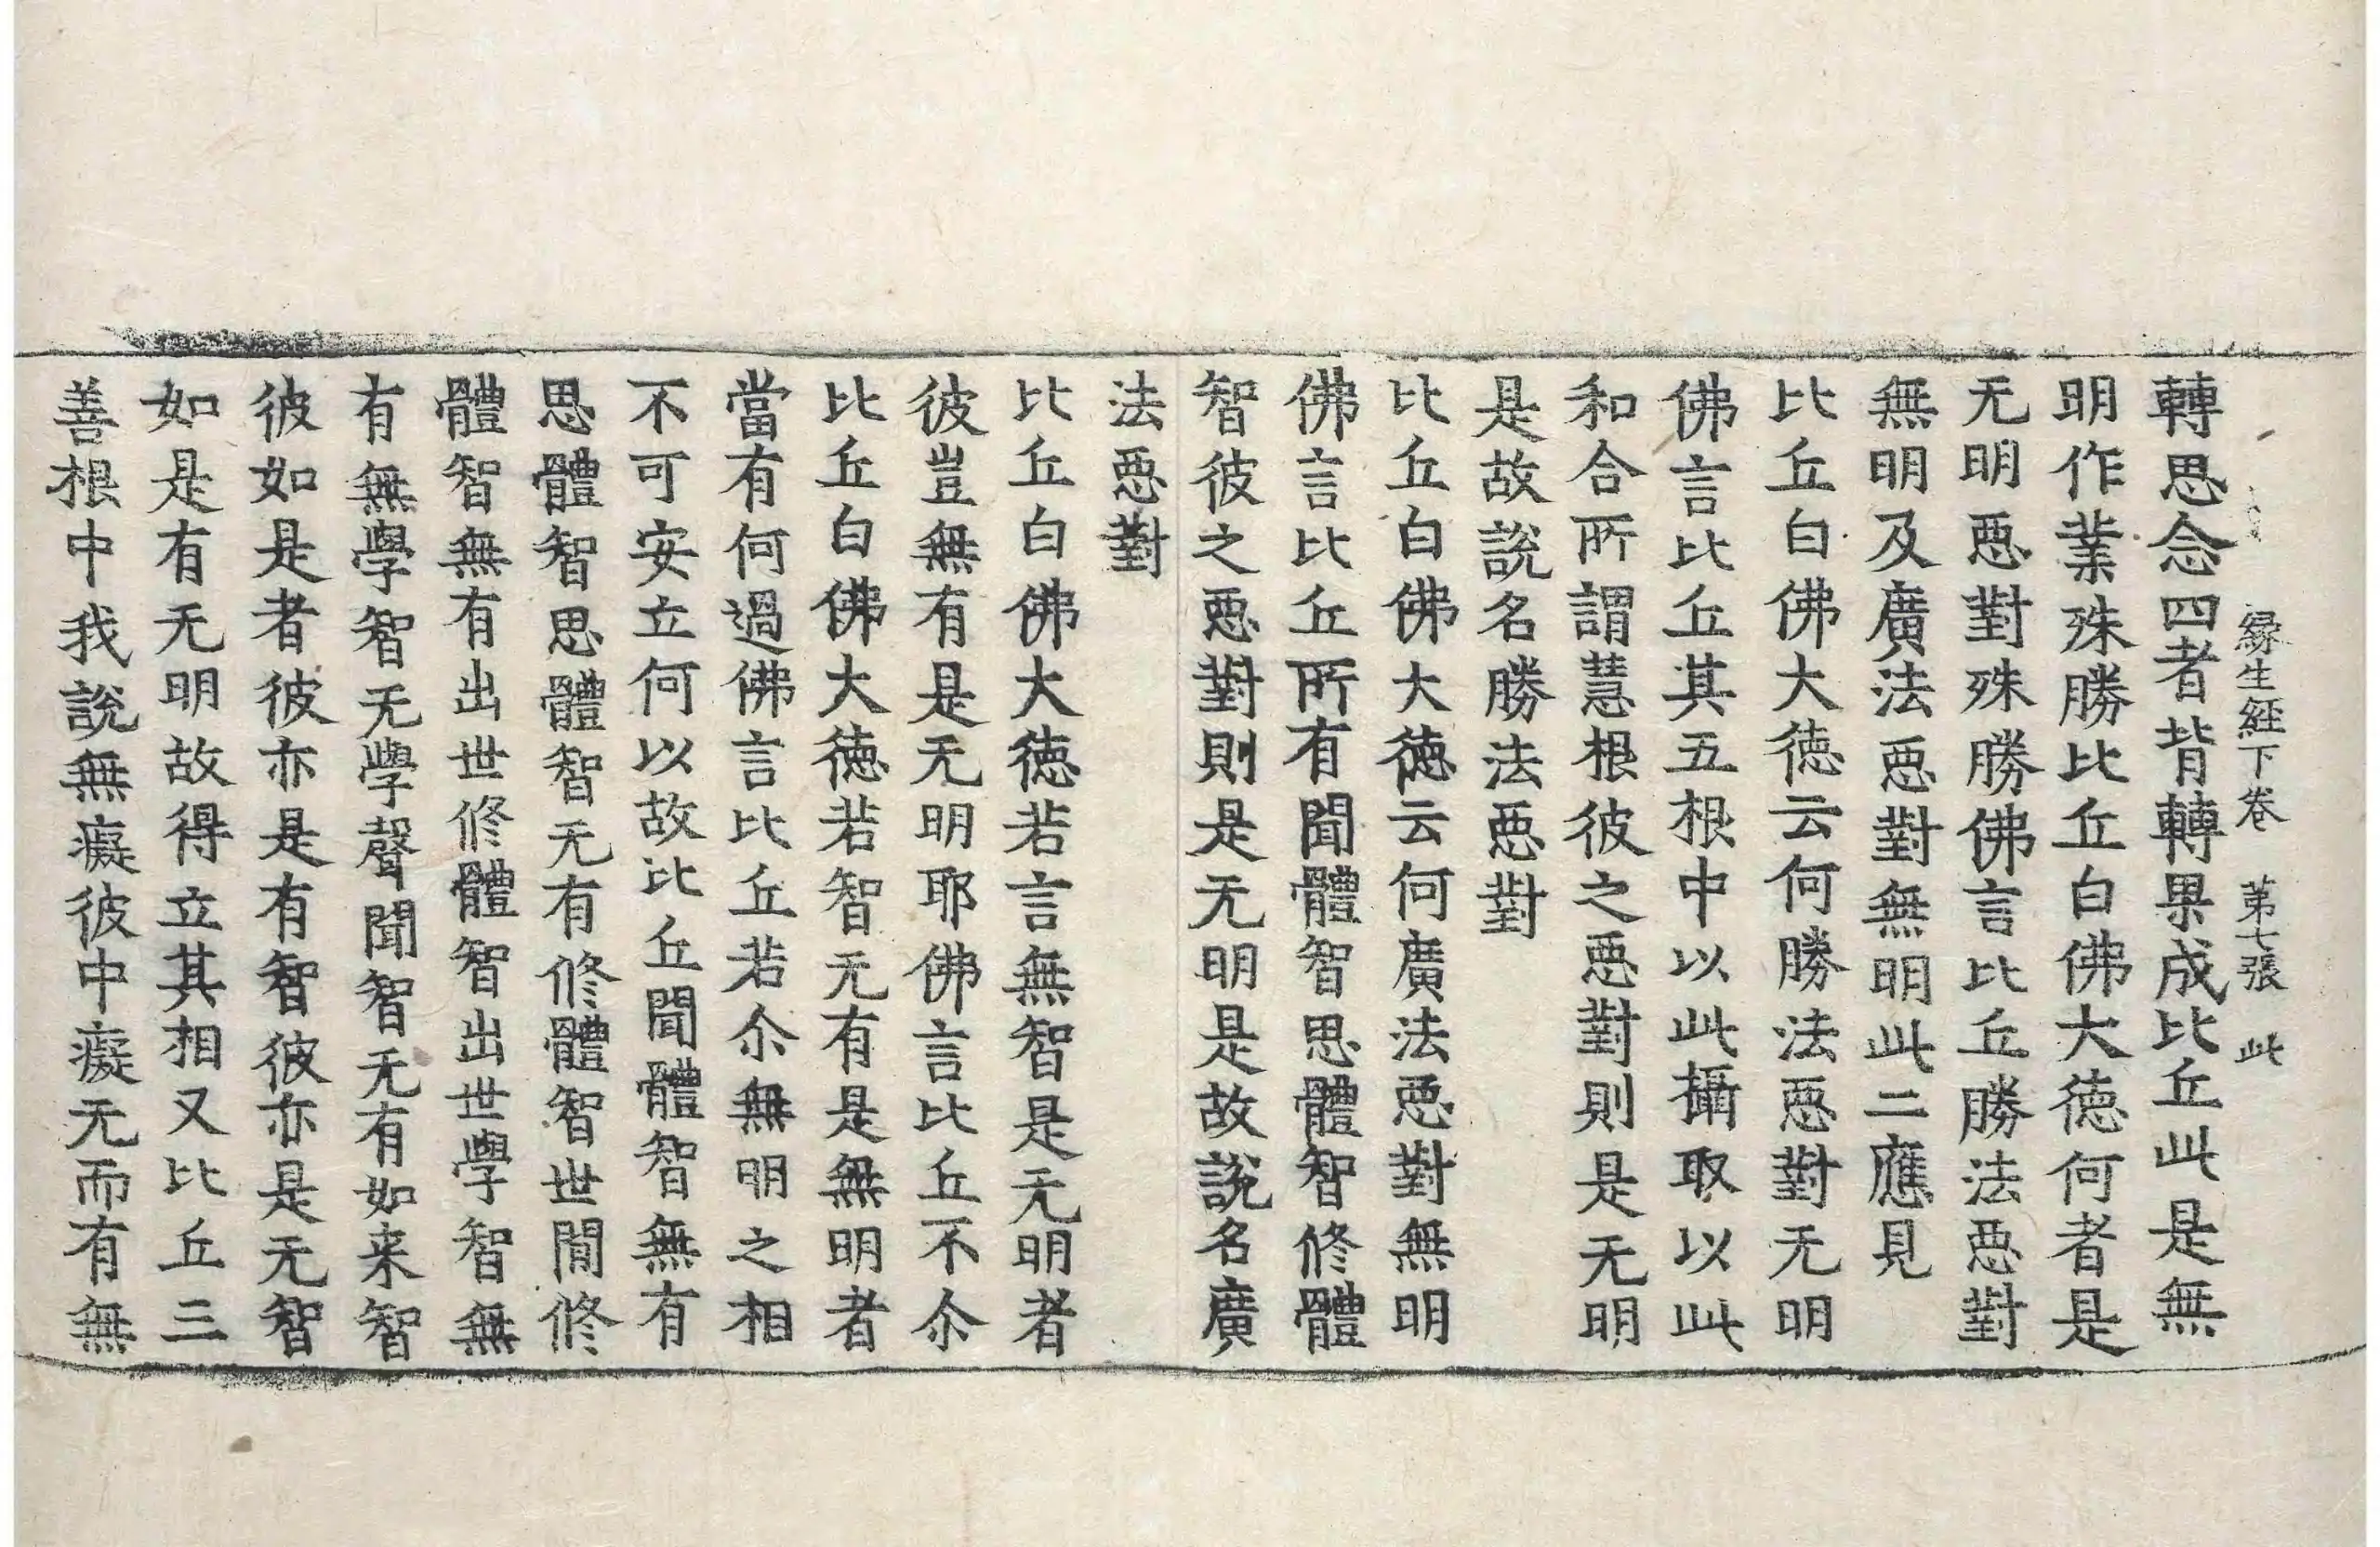 緣生經下卷 苐七張 此
轉思念四者背轉果成比丘此是無
明作業殊勝比丘白佛大德何者是
无明惡對殊勝佛言比丘勝法惡對
無明及廣法惡對無明此二應見
比丘白佛大德云何勝法惡對无明
佛言比丘其五根中以此攝取以此
和合所謂慧根彼之惡對則是无明
是故說名勝法惡對
比丘白佛大德云何廣法惡對無明
佛言比丘所有聞體智思體智修體
智彼之惡對則是无明是故說名廣
法惡對
比丘白佛大德若言無智是无明者
彼豈無有是无明耶佛言比丘不尒
比丘白佛大德若智无有是無明者
當有何過佛言比丘若尒無明之相
不可安立何以故比丘聞體智無有
思體智思體智无有修體智世間修
體智無有出世修體智出世學智無
有無學智无學聲聞智无有如来智
彼如是者彼亦是有智彼亦是无智
如是有无明故得立其相又比丘三
善根中我說無癡彼中癡无而有無